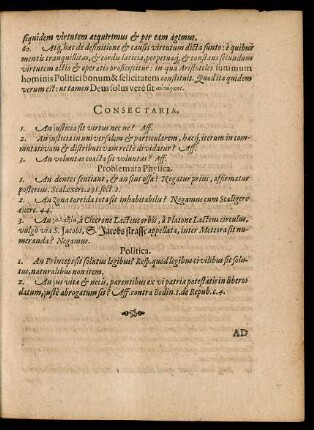 siquidem virtutem acquirimus & per eam agimus.
60. Atq, hæc de definitione & causis virtutum dicta sunto: è quibus
mentis tranquilitas, & cordis laticia, perpetuaq, & constans secundum
virtutem actio & operatio proficiscitur: in qua Aristoteles summum
hominis Politici bonum & felicitatem constituit. Quod ita quidem
verum est: ut tamen Deus solus verè sit
CONSECTARIA.
1. An justicia sit virtus nec ne? Aff.
2. An justicia in universalem & particularem, hac q, iterum in com-
mutativam & distributivam rectè dividatur? Aff.
3. An voluntas coacta sit voluntas? Aff.
Problemata Physica.
1. An dentes sentiant, & an sint ossa? Negatur prius, affirmatur
posterius. Scal. exerc. 291. sect. 2.
2. An Zona torrida tota sit inhabitabilis? Negamus cum Scaligero
exerc. 44.
3. An à Cicerone Lacteus orbis, à Platone Lacteus circulus,
vulgò via S. Jacobi, S. Jacobs strasse appellata, inter Meteora sit nu-
meranda? Negamus.
Politica.
1. An Princeps sit solutus legibus? Resp. quod legibus civilibus sit solu-
tus, naturalibus non item.
2. An jus vitæ & necis, parentibus ex vi patriæ potestatis in liberos
datum, justè abrogatum sit? Aff. contra Bodin. 1. de Repub. c. 4.
AD